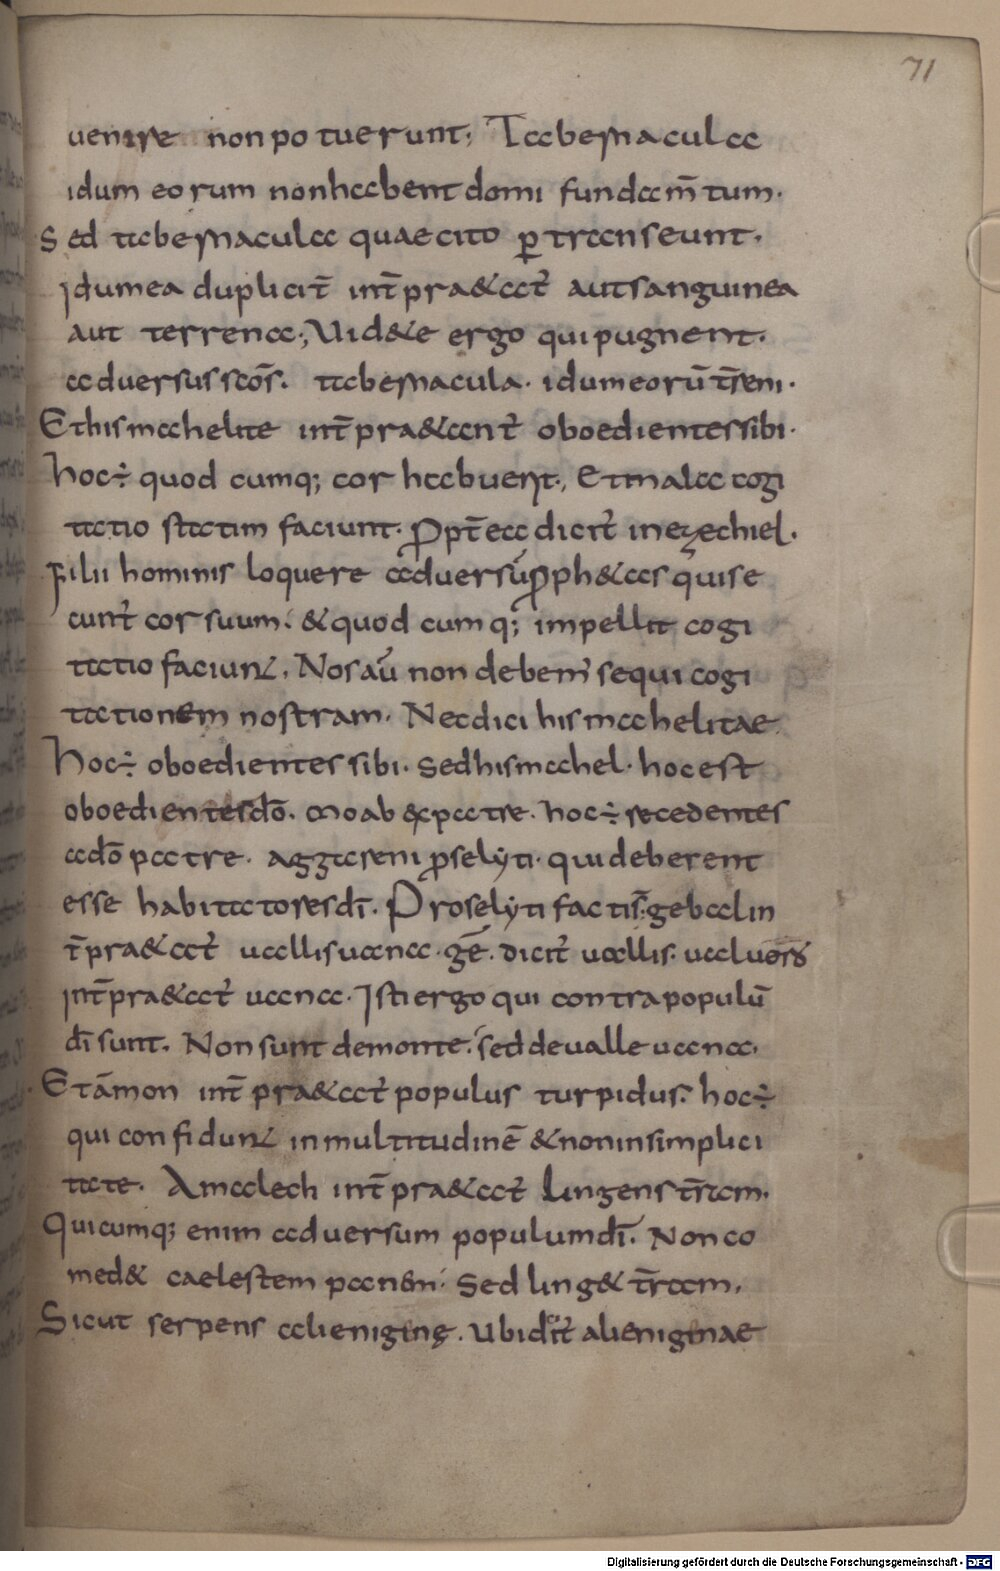 71
uenire non potuerunt; Tabernacula
idumeorum non habent domi fundam̄tum.
Sed tabernacula quae cito ꝑ transeunt.
Idumea duplicit̄ int̄pra&at᷑ aut sanguinea
aut terrena; Uid&e ergo qui pugnent.
aduersus sc̄os. tabernacula. idumeorū t̄reni.
Et hismahelite int̄pra&ant᷑ oboedientes sibi.
hoc ÷ quod cumq; cor habuerit, Et mala cogi
tatio statim faciunt. Propt̄ea dicit᷑ in ezechiel.
Filii hominis loquere aduersū proph&as qui se
cunt᷑ cor suum. & quod cumq; impellit cogi
tatio faciunt. Nos aū non debem᷑ sequi cogi
tationem nostram. Nec dici hismahelitae
hoc ÷ oboedientes sibi. sed hismahel. hoc est
oboedientes dō. moab ex patre. hoc ÷ recedentes
a dō patre. aggareni ꝓselyti. qui deberent
esse habitatores dī. Proselyti facti s̄. gebal in
t̄pra&at᷑ uallis uana. gē. dicit᷑ uallis. ual uors̄
int̄pra&at᷑ uana. Isti ergo qui contra populū
dī sunt. Non sunt de monte. sed de ualle uana.
Et āmon int̄pra&at᷑ populus turpidus. hoc ÷
qui confidunt in multitudinē & non in simplici
tate. Amalech int̄pra&at᷑ lingens t̄ram.
Qui cumq; enim aduersum populum dī. Non co
med& caelestem panem. Sed ling& t̄ram.
Sicut serpens alienigenę. Ubi dicit᷑ alienigenae
Digitalisierung gefördert durch die Deutsche Forschungsgemeinschaft - DFG